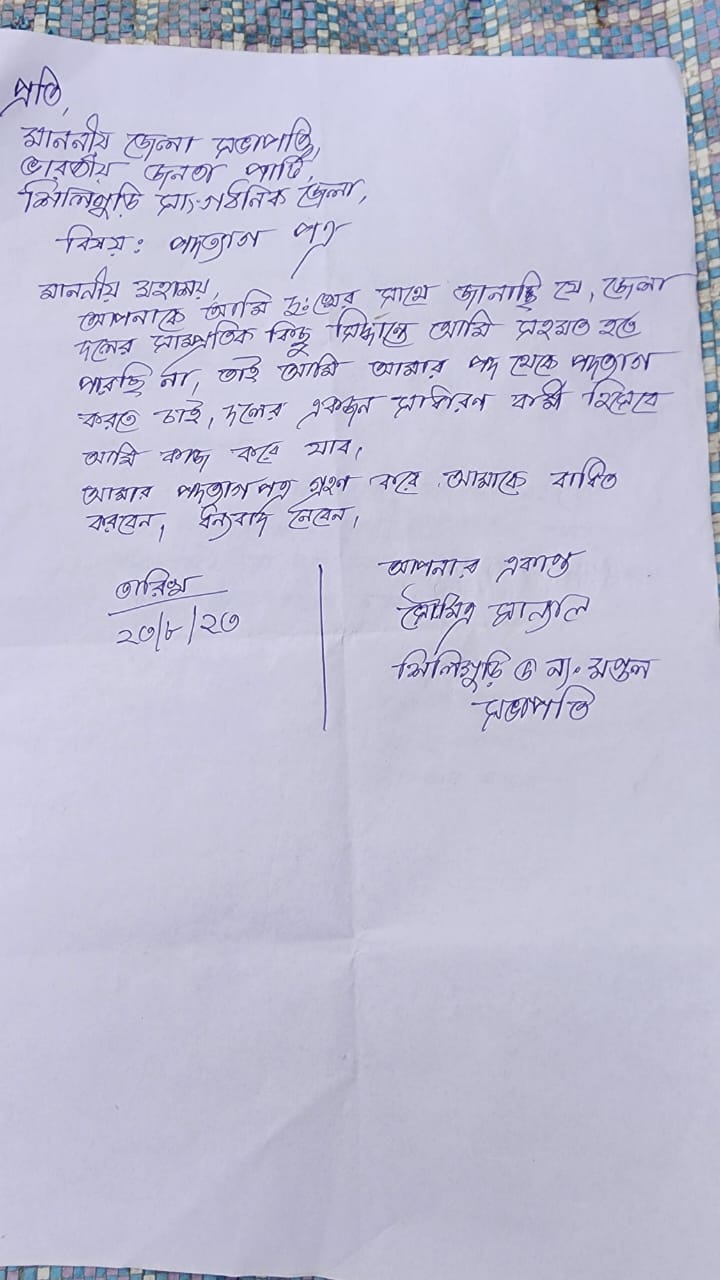 প্রতি,
মাননীয় জেলা সভাপতি,
ভারতীয় জনতা পার্টি,
শিলিগুড়ি সাংগঠনিক জেলা,
বিষয়: পদত্যাগ পত্র
মাননীয় মহাশয়,
আপনাকে আমি দুঃখের সাথে জানাচ্ছি যে, জেলা
দলের সাম্প্রতিক কিছু সিদ্ধান্তে আমি সহমত হতে
পারছি না, তাই আমি আমার পদ থেকে পদত্যাগ
করতে চাই, দলের একজন সাধারণ কর্মী হিসেবে
আমি কাজ করে যাব।
আমার পদত্যাগ পত্র গ্রহণ করে আমাকে বাধিত
করবেন, ধন্যবাদ নেবেন,
আপনার একান্ত
সৌমিত্র সান্যাল
শিলিগুড়ি ৩ নং মণ্ডল
সভাপতি
তারিখ
২৩/৮/২৩